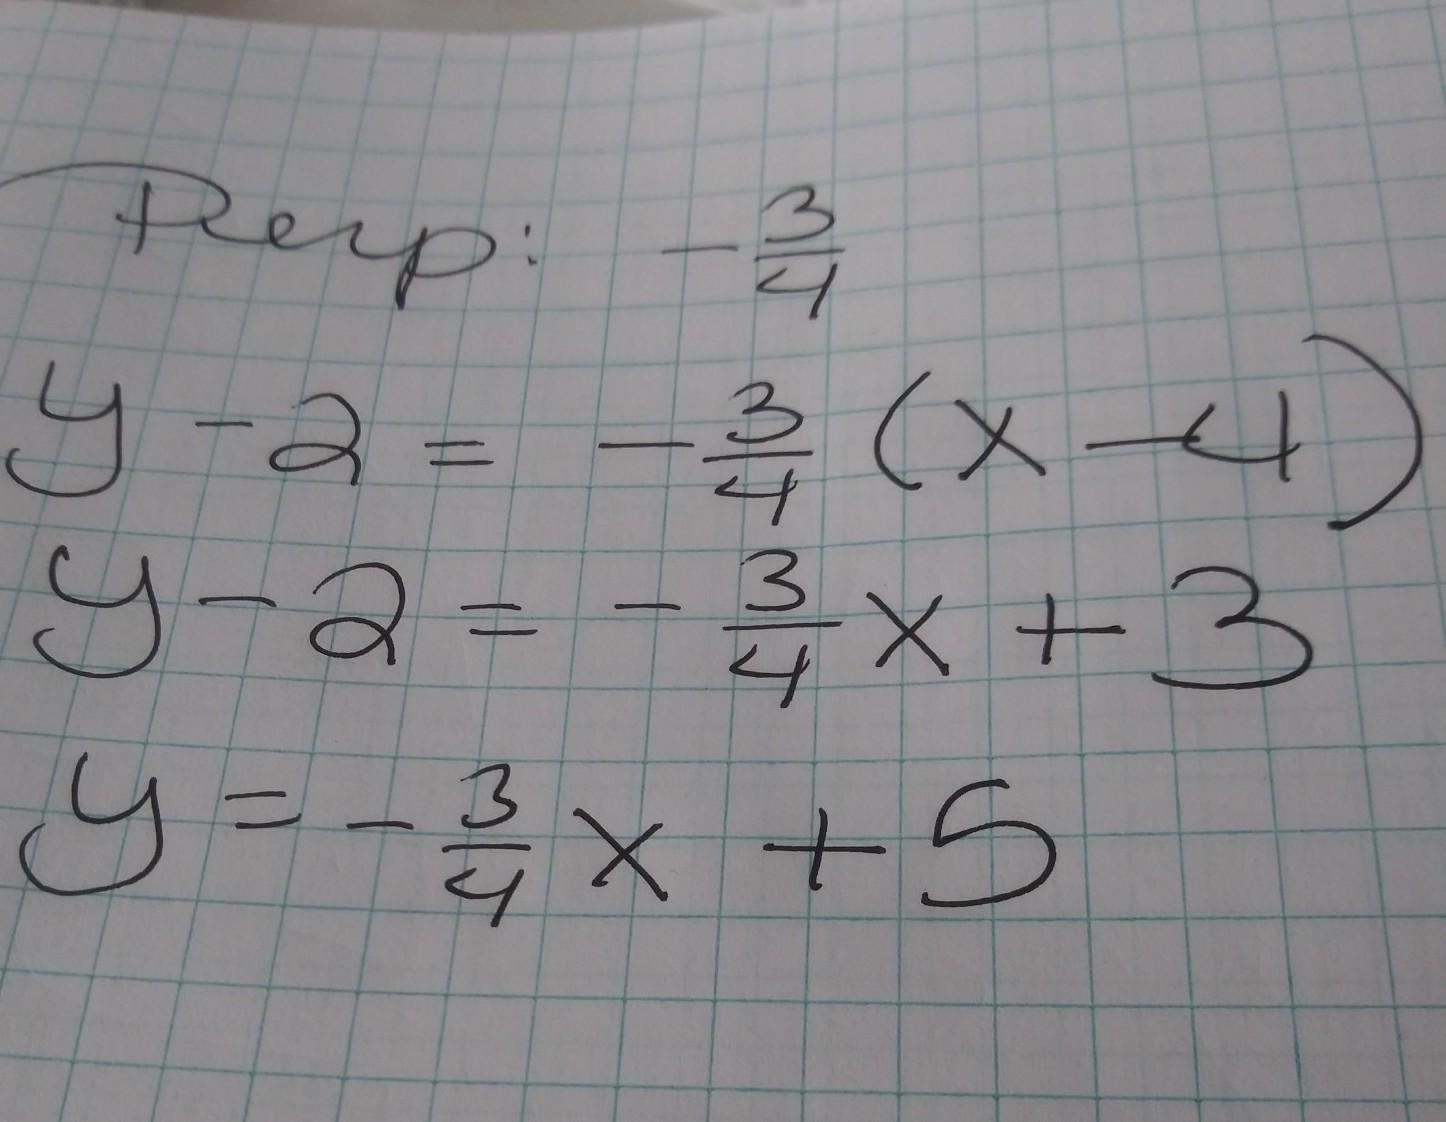 Perp: -3/4
y - 2 = -3/4 (x - 4)
y - 2 = -3/4 x + 3
y = -3/4 x + 5